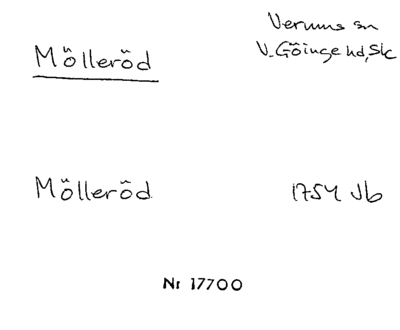 Verums sn
Mölleröd
V. Göinge hd, Sk
Mölleröd
1754 Jb
Nr 17700